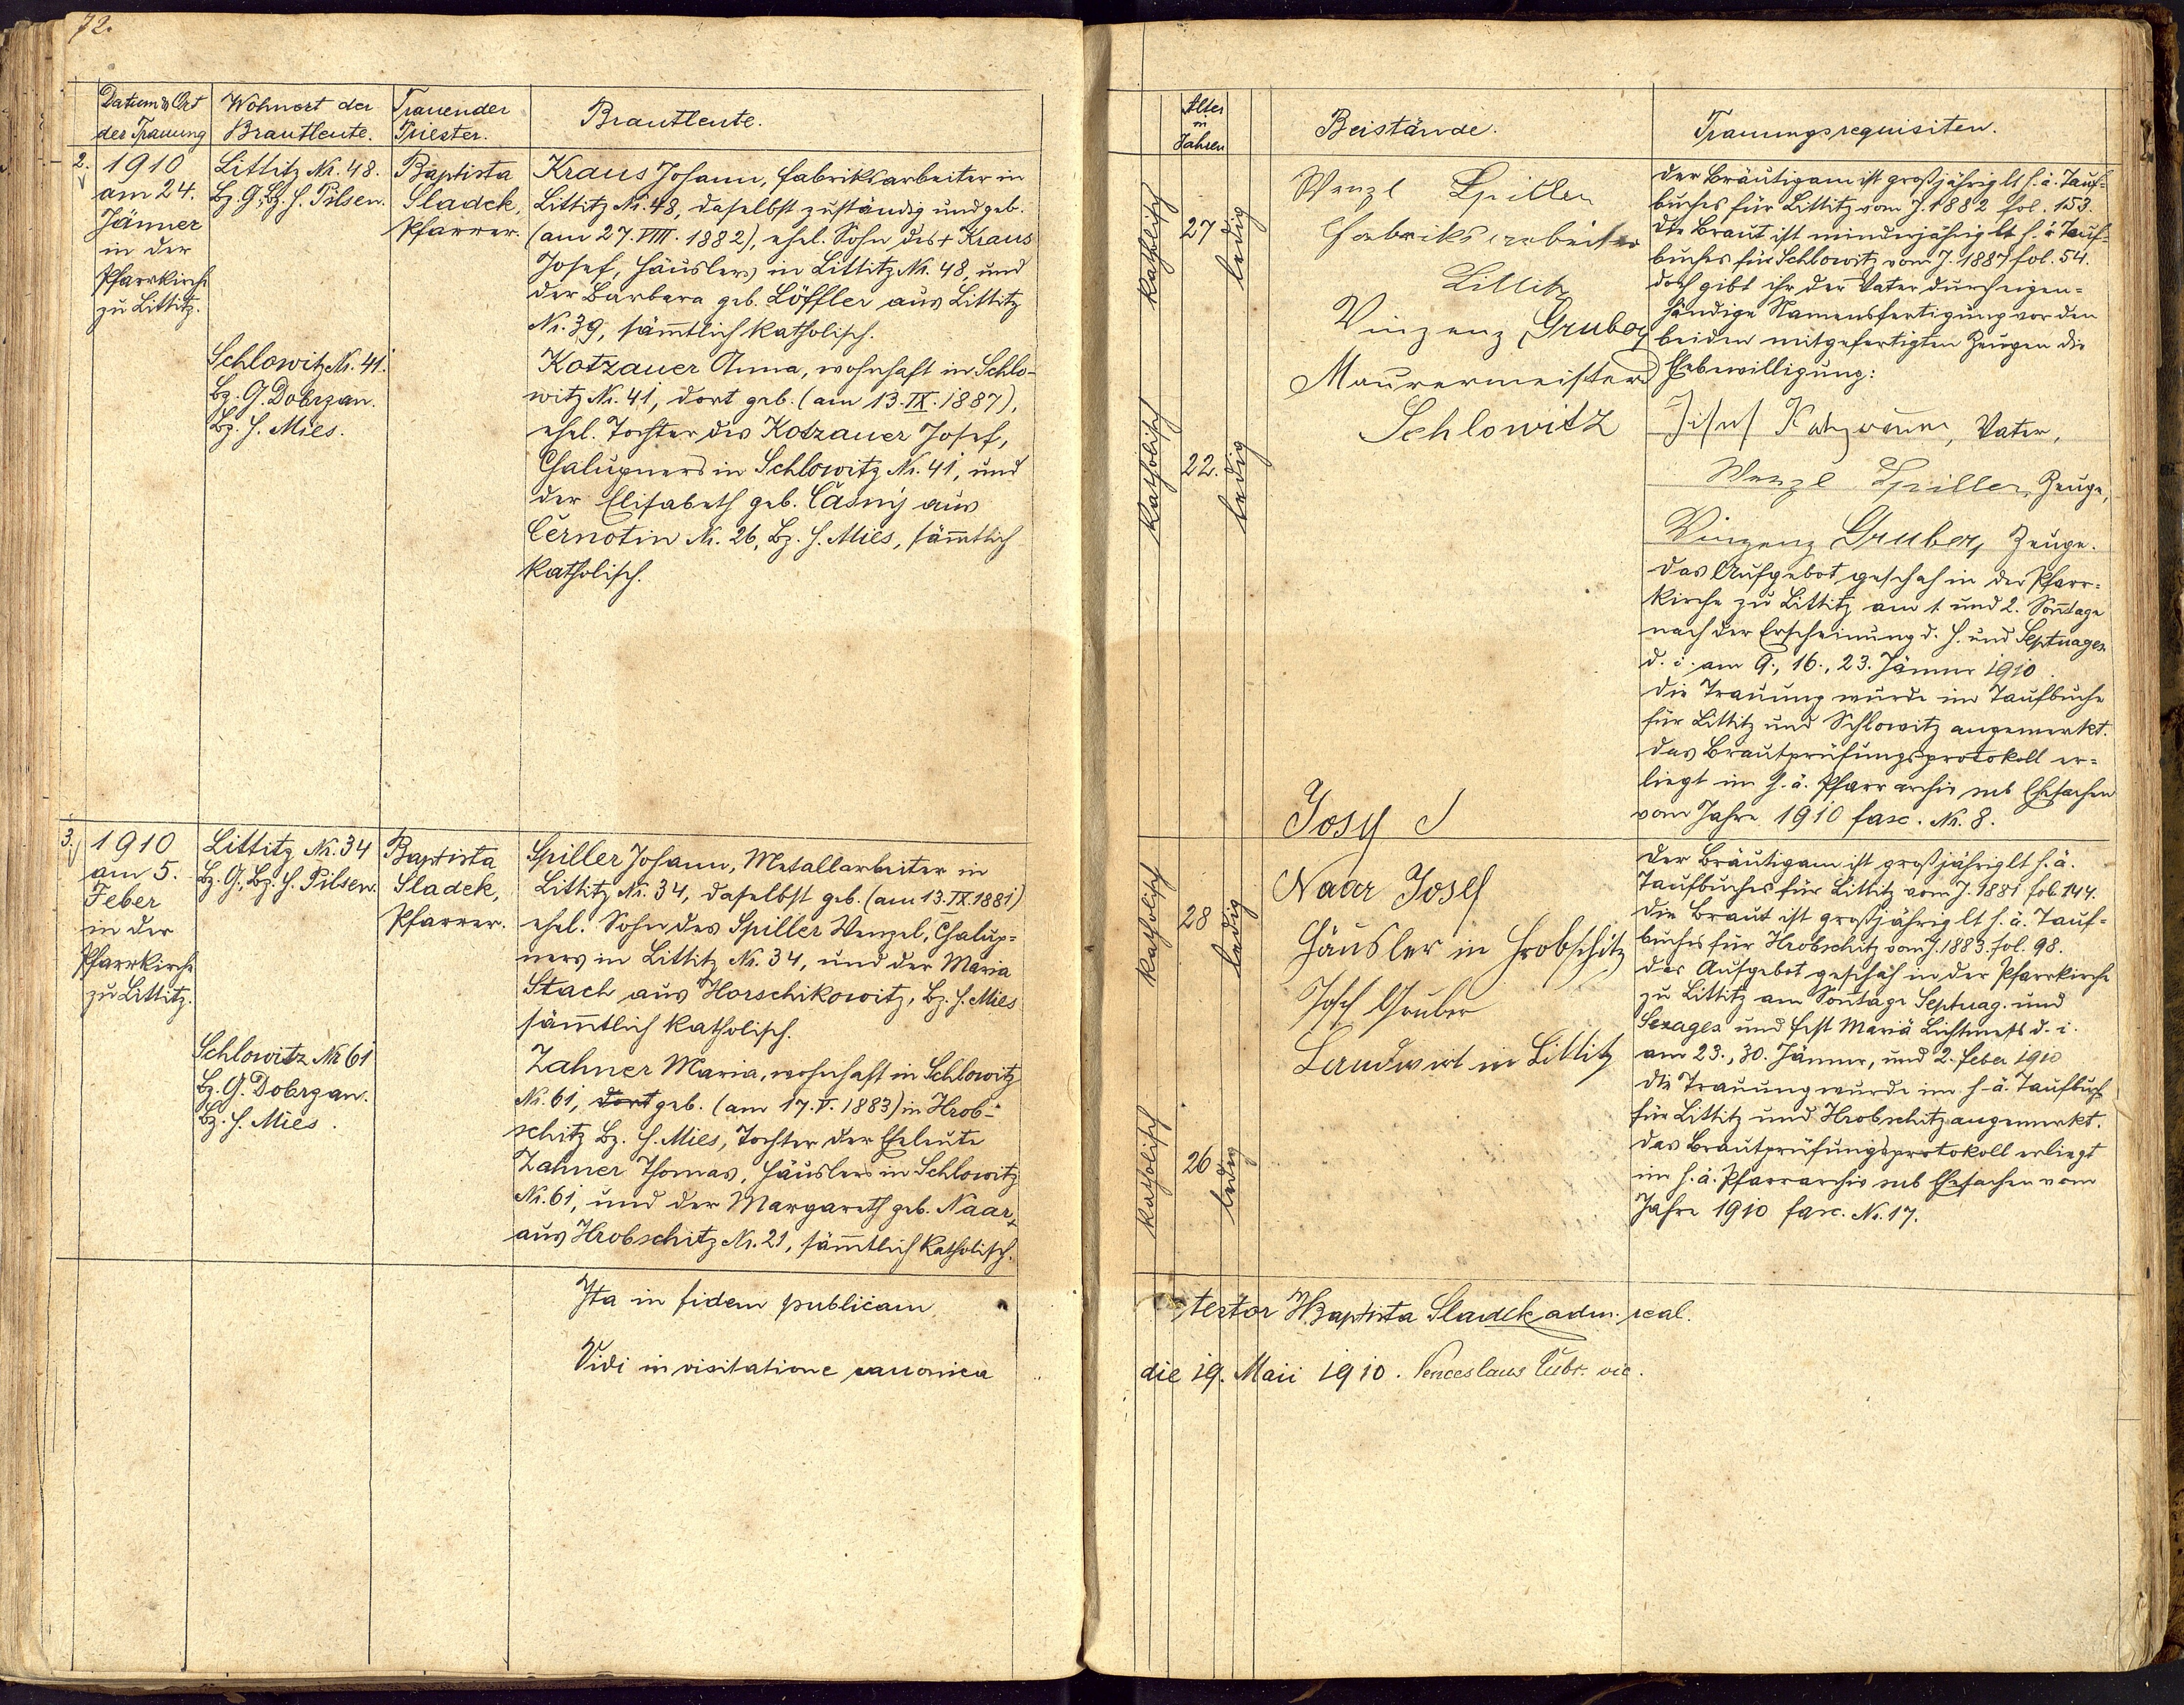 72.
Datum & Ort
der Trauung
Wohnort der
Brautleute.
Trauender
Priester.
Brautleute.
2.
1910
am 24.
Jänner
in der
Pfarrkirche
zu Littitz.
Littitz Nr. 48.
Bz. G., Bz. H. Pilsen.
Schlowitz Nr. 41.
Bz. G. Dobrzan.
Bz. H. Mies.
Baptista
Sladek,
Pfarrer.
Kraus Johann, Fabriksarbeiter in
Littitz Nr. 48, daselbst zuständig und geb.
(am 27. VIII. 1882), ehel. Sohn des + Kraus
Josef, Häuslers in Littitz Nr. 48, und
der Barbara geb. Löffler aus Littitz
Nr. 39, sämmtlich katholisch.
Kotzauer Anna, wohnhaft in Schlo-
witz Nr. 41, dort geb. (am 13. IX. 1887),
ehel. Tochter des Kotzauer Josef,
Chalupners in Schlowitz Nr. 41, und
der Elisabeth geb. Časný aus
Černotin Nr. 26, Bz. H. Mies, sämmtlich
katholisch.
3.
1910
am 5.
Feber
in der
Pfarrkirche
zu Littitz.
Littitz Nr. 34
Bz. G., Bz. H. Pilsen.
Schlowitz Nr 61
Bz. G. Dobrzan.
Bz. H. Mies.
Baptista
Sladek,
Pfarrer.
Spiller Johann, Metallarbeiter in
Littitz Nr. 34, daselbst geb. (am 13. IX. 1881)
ehel. Sohn des Spiller Wenzel, Chalup=
ners in Littitz Nr. 34, und der Maria
Stach aus Horschikowitz, Bz. H. Mies
sämmtlich katholisch.
Zahner Maria, wohnhaft in Schlowitz
Nr. 61, dort geb. (am 17. V. 1883) in Hrob-
schitz Bz. H. Mies, Tochter der Eheleute
Zahner Thomas, Häuslers in Schlowitz
Nr. 61, und der Margareth geb. Naar,
aus Hrobschitz Nr. 21, sämmtlich katholisch.
Ita in fidem publicam
Vidi in visitatione canonica
Alter
in
Jahren
Beistände.
Trauungsrequisiten.
katholisch
27
ledig
katholisch
22.
ledig
Wenzl Spiller
Fabriksarbeiter
Littitz
Vinzenz Gruber
Maurermeister
Schlowitz
Der Bräutigam ist großjährig lt h. ä. Tauf=
buches für Littitz vom J. 1882 fol. 153.
Die Braut ist minderjährig lt h. ä Tauf=
buches für Schlowitz vom J. 1887 fol. 54.
doch gibt ihr der Vater durch eigen=
händige Namensfertigung vor den
beiden mitgefertigten Zeugen die
Ehebewilligung:
Josef Kotzauer, Vater,
Wenzl Spiller, Zeuge,
Vinzenz Gruber, Zeuge.
Das Aufgebot geschah in der Pfarr=
kirche zu Littitz am 1. und 2. Sonntage
nach der Erscheinung d. H. und Septuages.
d. i. am 9., 16., 23. Jänner 1910.
Die Trauung wurde im Taufbuche
für Littitz und Schlowitz angemerkt.
Das Brautprüfungsprotokoll er=
liegt im h. ä. Pfarrarchiv sub Ehesachen
vom Jahre 1910 fasc. Nr. 8.
katholisch
28
ledig
katholisch
26
ledig
Naar Josef
Häusler in Hrobschitz
Josef Gruber
Landwirt in Littitz
Der Bräutigam ist großjährig lt h. ä.
Taufbuches für Littitz vom J. 1881 fol. 144.
Die Braut ist großjährig lt h. ä. Tauf=
buches für Hrobschitz vom J. 1883. fol. 98.
Das Aufgebot geschah in der Pfarrkirche
zu Littitz am Sonntage Septuag. und
Sexages und Fest Mariä Lichtmeß d. i.
am 23., 30. Jänner, und 2. Feber 1910
Die Trauung wurde im h. ä. Taufbuch
für Littitz und Hrobschitz angemerkt.
Das Brautprüfungsprotokoll erliegt
im h. ä. Pfarrarchiv sub Ehesachen vom
Jahre 1910 fasc. Nr. 17.
testor Baptista Sladek adm. real.
die 19. Maii 1910. Venceslaus vic.